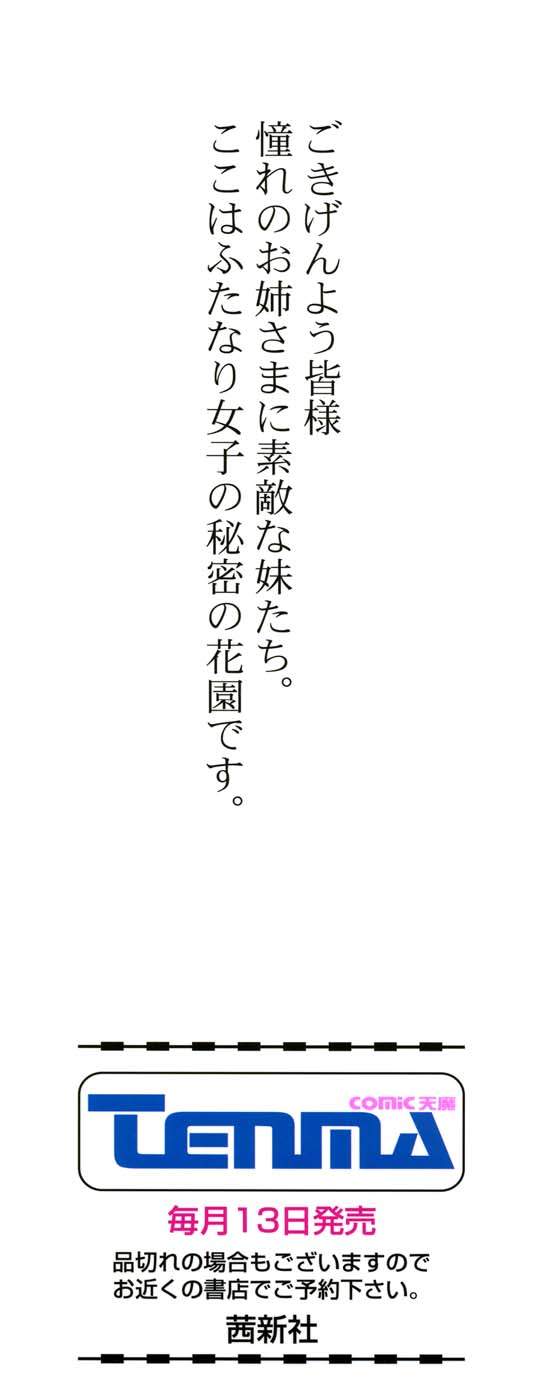 ごきげんよう皆様
憧れのお姉さまに素敵な妹たち。
ここはふたなり女子の秘密の花園です。
COMIC 天魔
TENMA
毎月13日発売
品切れの場合もございますので
お近くの書店でご予約下さい。
茜新社